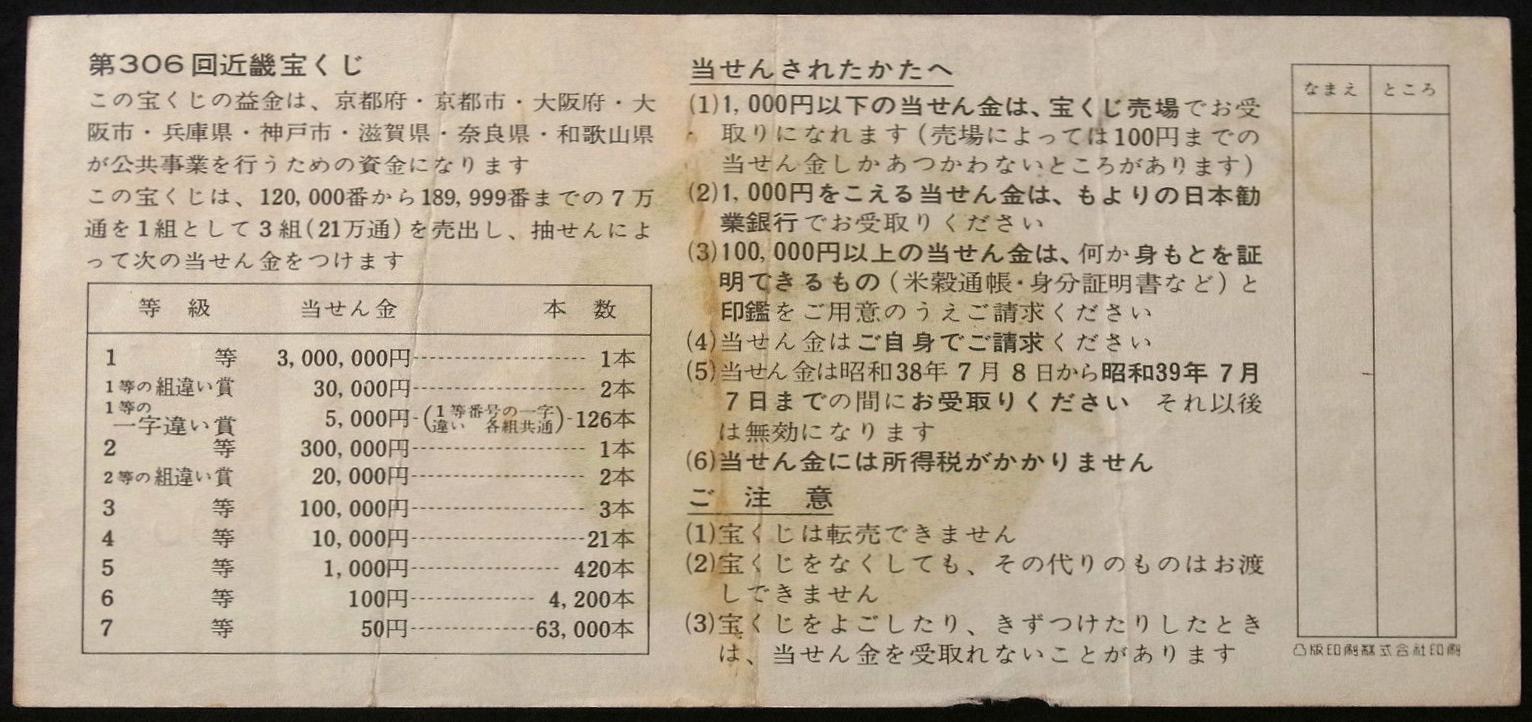 第306回近畿宝くじ
この宝くじの益金は、京都府・京都市・大阪府・大
阪市・兵庫県・神戸市・滋賀県・奈良県・和歌山県
が公共事業を行うための資金になります
この宝くじは、120,000番から189,999番までの7万
通を1組として3組(21万通)を売出し、抽せんによ
って次の当せん金をつけます
等 級 当せん金 本 数
1 等 3,000,000円 1本
1等の組違い賞 30,000円 2本
1等の
一字違い賞 5,000円 (1等番号の一字違い 各組共通) 126本
2 等 300,000円 1本
2等の組違い賞 20,000円 2本
3 等 100,000円 3本
4 等 10,000円 21本
5 等 1,000円 420本
6 等 100円 4,200本
7 等 50円 63,000本
当せんされたかたへ
(1)1,000円以下の当せん金は、宝くじ売場でお受
取りになれます(売場によっては100円までの
当せん金しかあつかわないところがあります)
(2)1,000円をこえる当せん金は、もよりの日本勧
業銀行でお受取りください
(3)100,000円以上の当せん金は、何か身もとを証
明できるもの(米穀通帳・身分証明書など)と
印鑑をご用意のうえご請求ください
(4)当せん金はご自身でご請求ください
(5)当せん金は昭和38年7月8日から昭和39年7月
7日までの間にお受取りください それ以後
は無効になります
(6)当せん金には所得税がかかりません
ご 注 意
(1)宝くじは転売できません
(2)宝くじをなくしても、その代りのものはお渡
しできません
(3)宝くじをよごしたり、きずつけたりしたとき
は、当せん金を受取れないことがあります
なまえ ところ
凸版印刷株式会社印刷